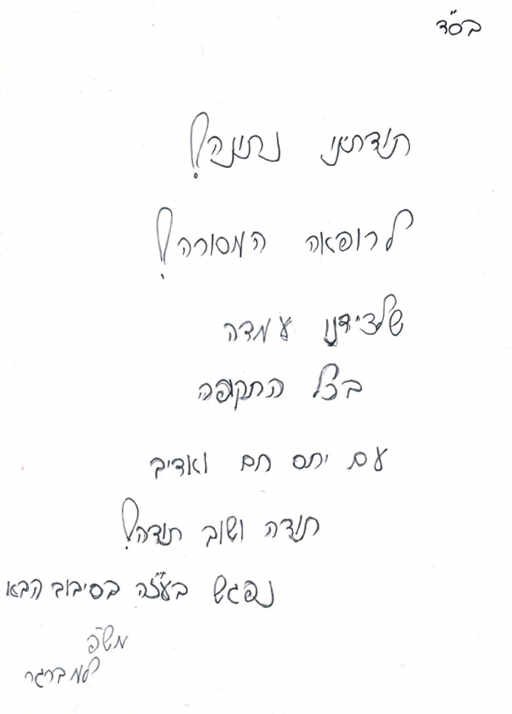 בס"ד
תודתינו נתונה!
לרופאה המסורה!
שלצידנו עמדה
בכל התקופה
עם יחס חם ואדיב
תודה ושוב תודה!
נפגש בעז"ה בסיבוב הבא
משפ'
למברגר